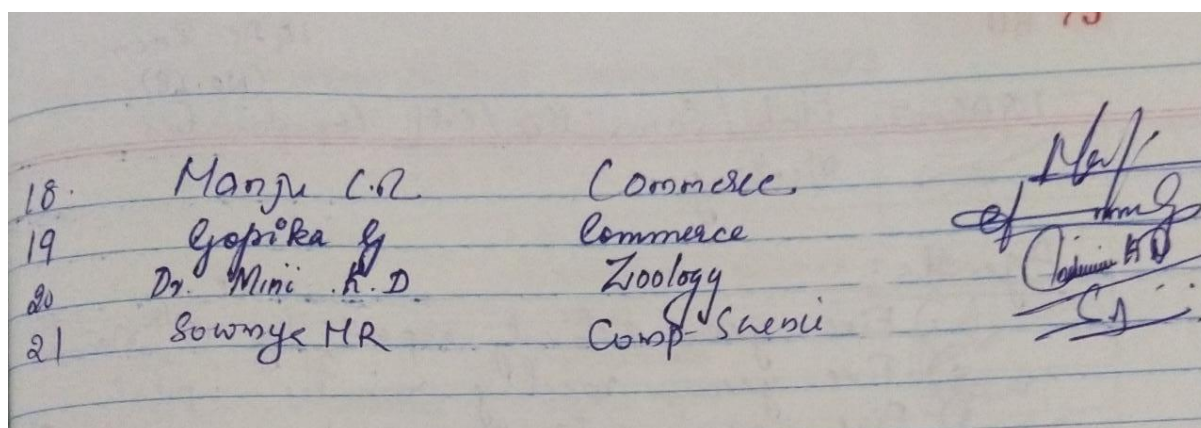 75
18. Manju C.R Commerce
19 Gopika G Commerce
20 Dr. Mini .K.D Zoology
21 Sowmya MR Comp-Science